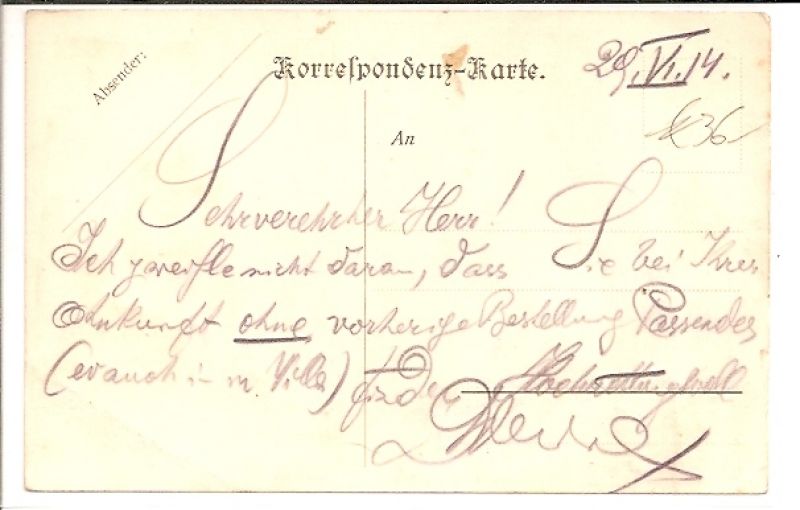 Absender:
Korrespondenz-Karte.
29. VI. 14.
k 36
An
Sehrverehrter Herr!
Ich zweifle nicht daran, dass Sie bei Ihrer
Ankunft ohne vorherige Bestellung Passendes
(ev auch in m Villa) finden. Hochachtungsvoll